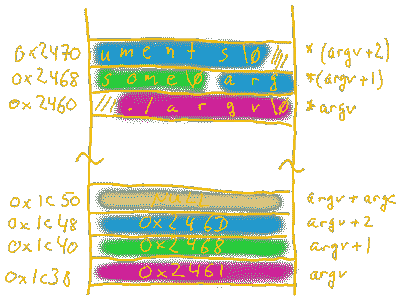 0x2470 u m e n t s \0 *(argv+2)
0x2468 s o m e \0 a r g *(argv+1)
0x2460 . / a r g v \0 *argv
0x1c50 argv + argc
0x1c48 0x246D argv+2
0x1c40 0x2468 argv+1
0x1c38 0x2461 argv